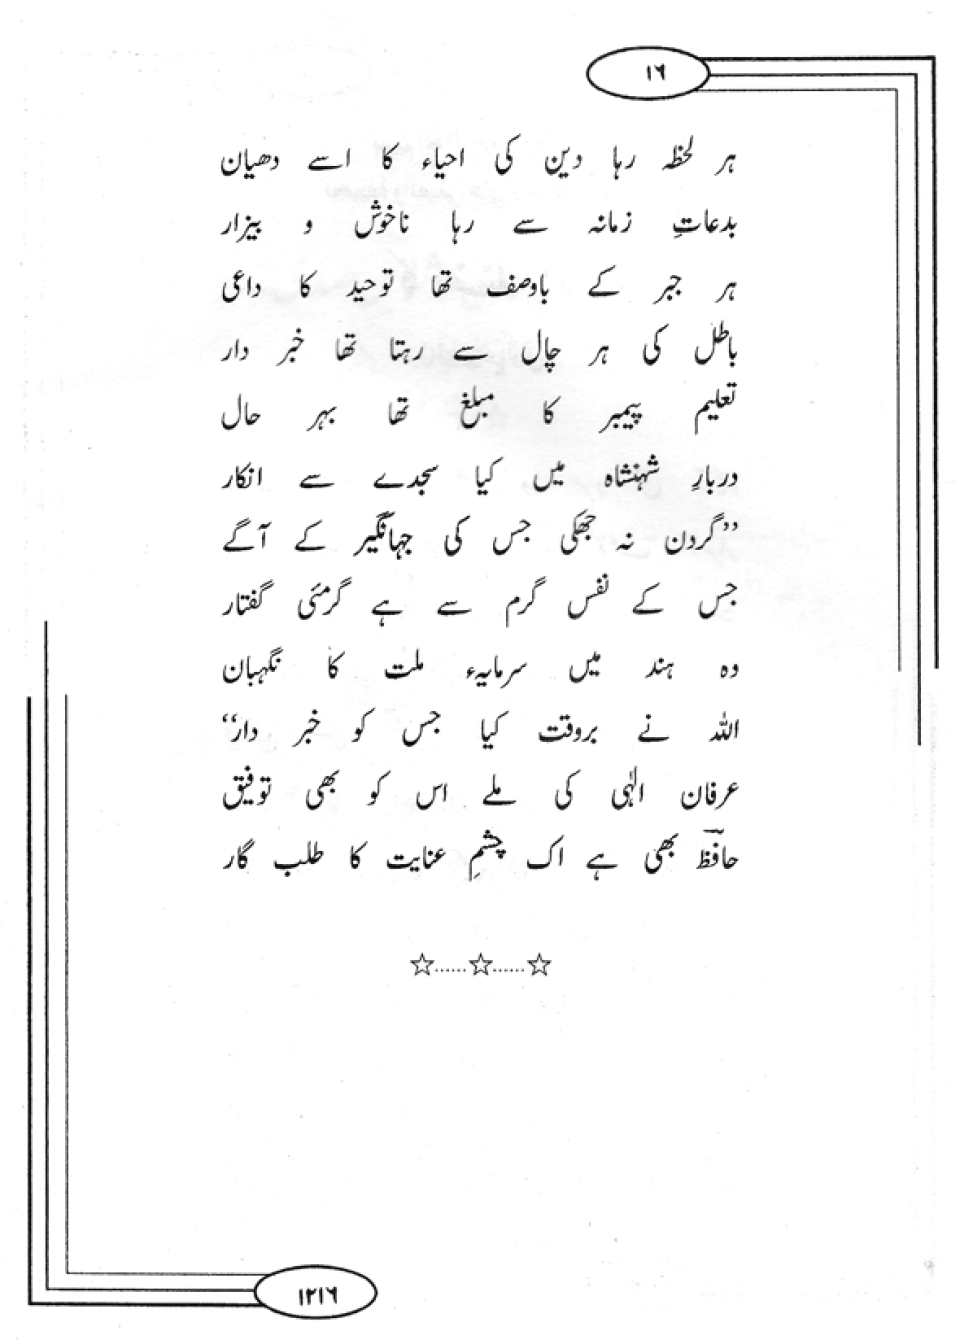 ۱۶
ہر لحظہ رہا دین کی احیاء کا اسے دھیان
بدعاتِ زمانہ سے رہا ناخوش و بیزار
ہر جبر کے باوصف تھا توحید کا داعی
باطل کی ہر چال سے رہتا تھا خبر دار
تعلیم پیمبر کا مبلغ تھا بہر حال
دربارِ شہنشاہ میں کیا سجدے سے انکار
”گردن نہ جھکی جس کی جہانگیر کے آگے
جس کے نفس گرم سے ہے گرمئی گفتار
وہ ہند میں سرمایہء ملت کا نگہبان
اللہ نے بروقت کیا جس کو خبر دار“
عرفان الٰہی کی ملے اس کو بھی توفیق
حافظؔ بھی ہے اک چشمِ عنایت کا طلب گار
☆......☆......☆
۱۲۱۶